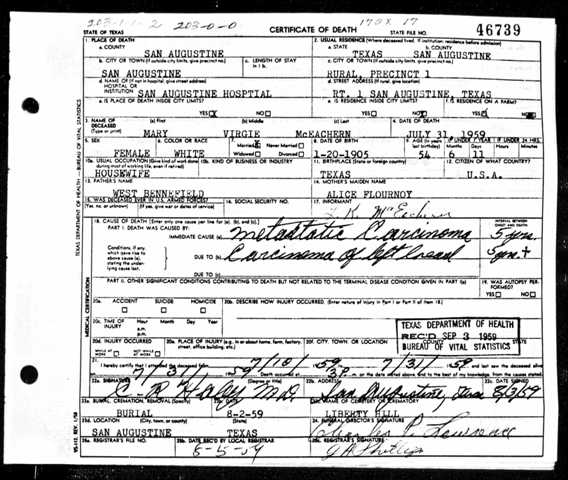 203-1-1-2 203-0-0 170X 17
STATE OF TEXAS CERTIFICATE OF DEATH STATE FILE NO. 46739
1. PLACE OF DEATH 2. USUAL RESIDENCE (Where deceased lived. If institution: residence before admission)
a. COUNTY a. STATE b. COUNTY
SAN AUGUSTINE TEXAS SAN AUGUSTINE
b. CITY OR TOWN (If outside city limits, give precinct no.) c. LENGTH OF STAY c. CITY OR TOWN (If outside city limits, give precinct no.)
SAN AUGUSTINE RURAL, PRECINCT 1
d. NAME OF (If not in hospital, give street address) d. STREET ADDRESS (If rural, give location)
HOSPITAL OR
INSTITUTION SAN AUGUSTINE HOSPTIAL RT. 1 SAN AUGUSTINE, TEXAS
e. IS PLACE OF DEATH INSIDE CITY LIMITS? e. IS RESIDENCE INSIDE CITY LIMITS? f. IS RESIDENCE ON A FARM?
YES NO YES NO YES NO
3. NAME OF DECEASED (Type or print) (a) First (b) Middle (c) Last 4. DATE OF DEATH
MARY VIRGIE McEACHERN JULY 31 1959
5. SEX 6. COLOR OR RACE 7. Married Never Married 8. DATE OF BIRTH 9. AGE IF UNDER 1 YEAR IF UNDER 24 HRS.
FEMALE WHITE Widowed Divorced 1-20-1905 54 6 11
10a. USUAL OCCUPATION (Give kind of work done 10b. KIND OF BUSINESS OR INDUSTRY 11. BIRTHPLACE (State or foreign country) 12. CITIZEN OF WHAT COUNTRY?
during most of working life, even if retired)
HOUSEWIFE TEXAS U.S.A.
13. FATHER'S NAME 14. MOTHER'S MAIDEN NAME
WEST BENNEFIELD ALICE FLOURNOY
15. WAS DECEASED EVER IN U.S. ARMED FORCES? 16. SOCIAL SECURITY NO. 17. INFORMANT
(Yes, no, or unknown) (If yes, give war or dates of service)
18. CAUSE OF DEATH (Enter only one cause per line for (a), (b), and (c).) INTERVAL BETWEEN ONSET AND DEATH
PART I. DEATH WAS CAUSED BY:
IMMEDIATE CAUSE (a) Metastatic Carcinoma 5 yrs.
Conditions, if any, which gave rise to above cause (a), stating the underlying cause last.
DUE TO (b) Carcinoma of left breast 5 yrs+
DUE TO (c)
PART II. OTHER SIGNIFICANT CONDITIONS CONTRIBUTING TO DEATH BUT NOT RELATED TO THE TERMINAL DISEASE CONDITION GIVEN IN PART I(a) 19. WAS AUTOPSY PERFORMED?
YES NO
20a. ACCIDENT SUICIDE HOMICIDE 20b. DESCRIBE HOW INJURY OCCURRED. (Enter nature of injury in Part I or Part II of item 18.)
20c. TIME OF INJURY Hour Month Day Year
a.m.
p.m.
TEXAS DEPARTMENT OF HEALTH
REC'D SEP 3 1959
BUREAU OF VITAL STATISTICS
20d. INJURY OCCURRED 20e. PLACE OF INJURY (e.g., in or about home, farm, factory, street, office building, etc.) 20f. CITY, TOWN, OR LOCATION
WHILE AT WORK NOT WHILE AT WORK
21. I hereby certify that I attended the deceased from 7/10 59 to 7/31 59 and last saw the deceased alive
on 7/31 59 Death occurred at 3P m. on the date stated above, and to the best of my knowledge, from the causes stated.
22a. SIGNATURE (Degree or title) 22b. ADDRESS 22c. DATE SIGNED
C. R. Haley M.D. San Augustine, Texas 8/3/59
23a. BURIAL, CREMATION, REMOVAL (Specify) 23b. DATE 23c. NAME OF CEMETERY OR CREMATORY
BURIAL 8-2-59 LIBERTY HILL
23d. LOCATION (City, town, or county) (State) 24. FUNERAL DIRECTOR'S SIGNATURE
SAN AUGUSTINE TEXAS Charles P. Lawrence
25a. REGISTRAR'S FILE NO. 25b. DATE REC'D BY LOCAL REGISTRAR 25c. REGISTRAR'S SIGNATURE
8-5-59
TEXAS DEPARTMENT OF HEALTH — BUREAU OF VITAL STATISTICS
MEDICAL CERTIFICATION